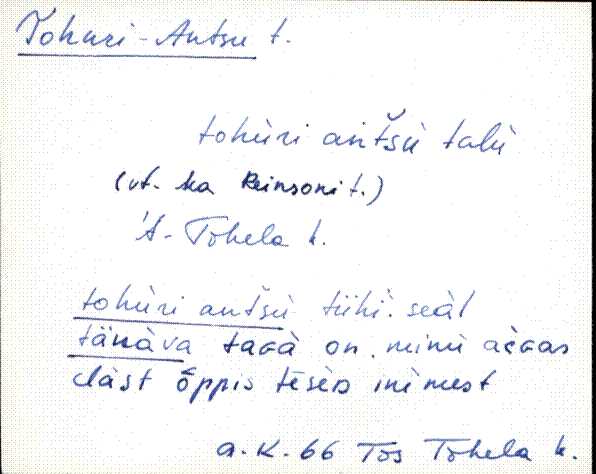 Tohuri-Antsu t.
tohùri anťšù talù
(vt. ka Reinsoni t.)
A- Tõhela k.
tohùri antšù tühi. seàl
tänàva taGà on. minù aèGas
elàst õppis tēsèD inìmest
a.K. 66 Tõs Tõhela k.